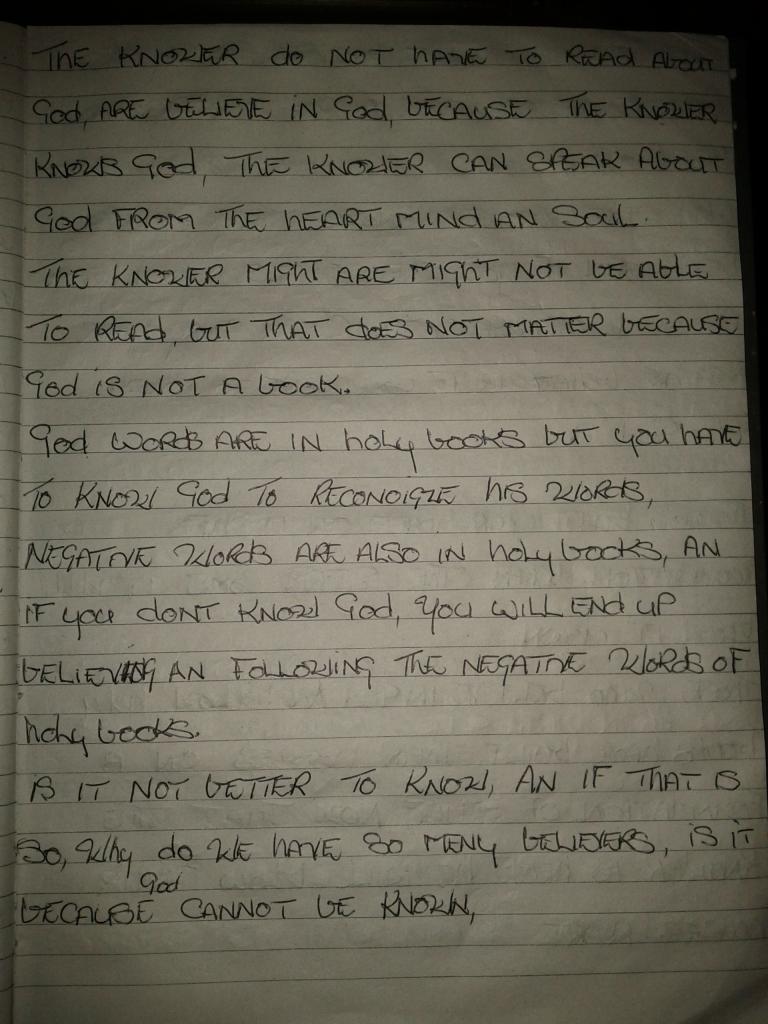 THE KNOWER do NOT hAVE TO REAd AbOUT
God, ARE bELIEVE iN God, bECAUSE THE KNOWER
KNOWS God, THE KNOWER CAN SPEAK AbOUT
God FROM THE hEART MINd AN SOUL.
THE KNOWER MIGhT ARE MIGhT NOT bE AbLE
TO REAd, bUT THAT dOES NOT MATTER bECAUSE
God iS NOT A bOOK.
God WORdS ARE IN holy books bUT you hAVE
TO KNOW God TO RECONGIZE hiS WORdS,
NEGATIVE WORdS ARE ALSO iN holy books, AN
IF you dONT KNOW God, you WILL ENd UP
bELIEVING AN FOLLOWING THE NEGATIVE WORdS OF
holy books.
IS IT NOT bETTER TO KNOW, AN IF THAT iS
SO, Why do WE hAVE SO MENy bELIEVERS, iS iT
bECAUSE God CANNOT bE KNOWN,